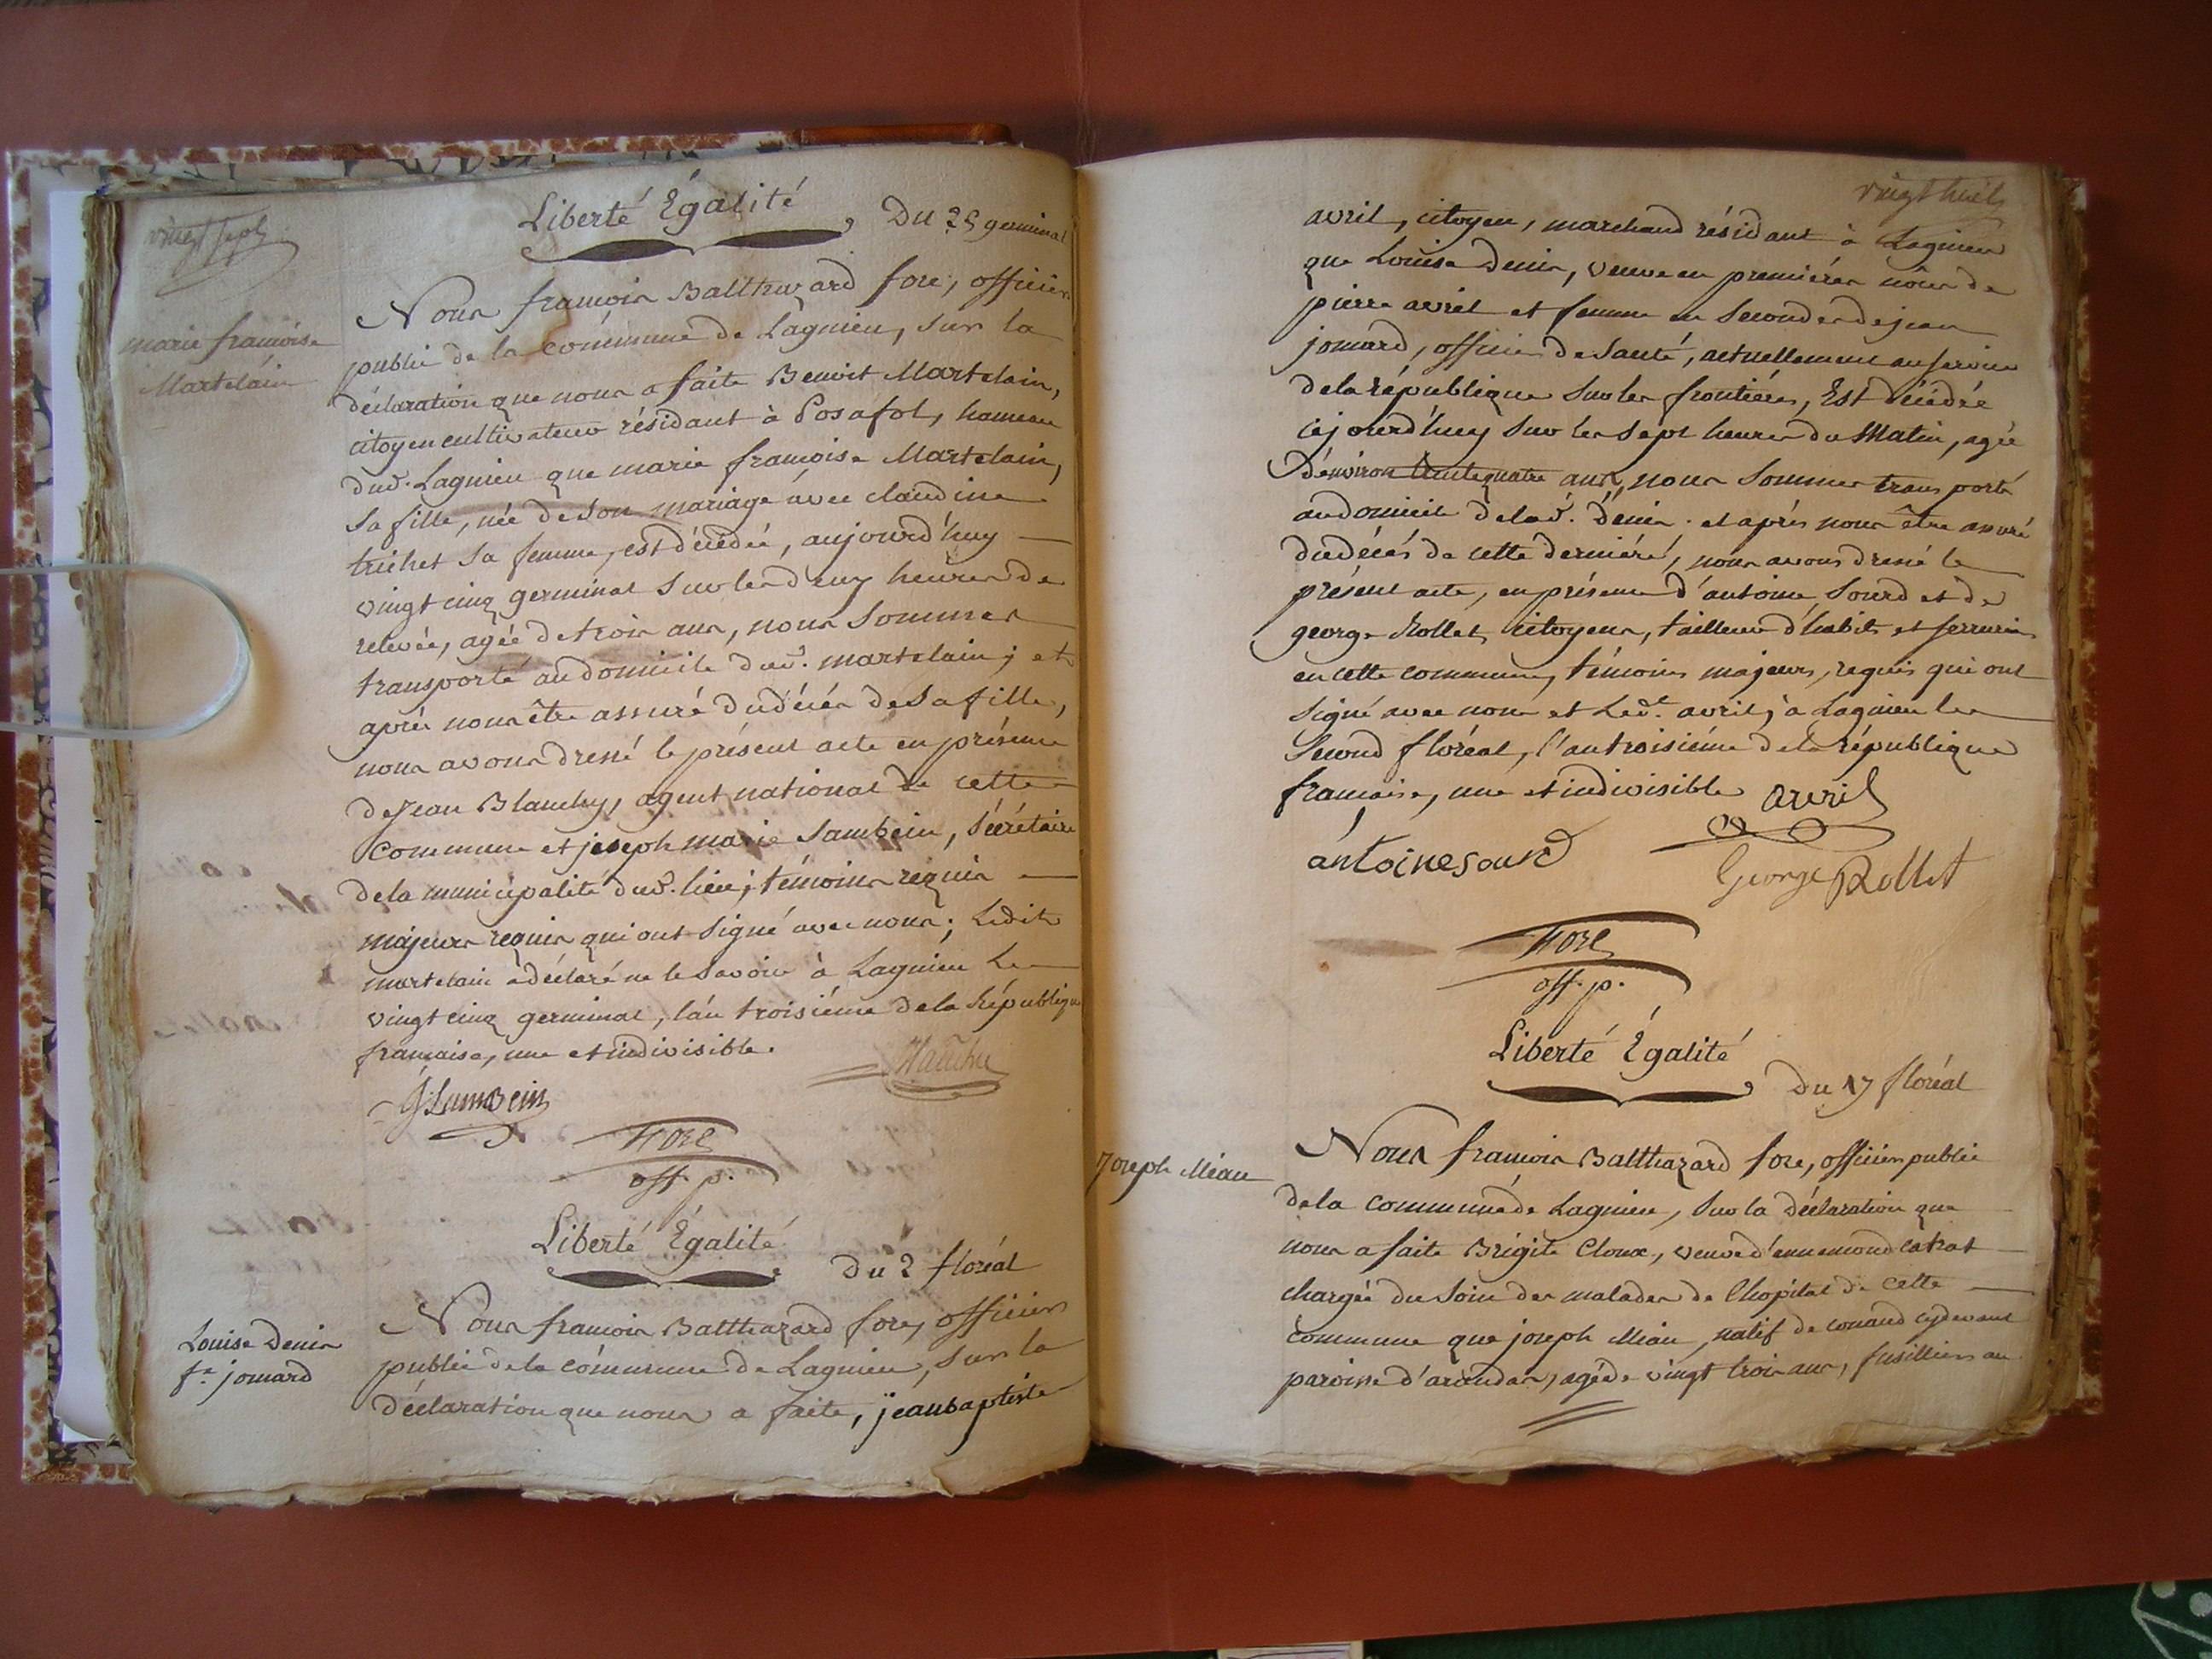 vingt sept
Liberté Égalité
Du 25 germinal
marie francoise
Martelain
Nous francois Balthazard fore, officier
public de la commune de Lagnieu, sur la
déclaration que nous a faite Benoit Martelain,
citoyen cultivateur résidant à Posafol, hameau
dud. Lagnieu que marie francoise Martelain,
sa fille, née de son mariage avec claudine
trichet sa femme, est décédée, aujourd'huy
vingt cinq germinal sur les deux heures de
relevée, agée de trois ans, nous sommes
transporté au domicile dud. martelain; et
après nous être assuré du décés de sa fille,
nous avons dressé le présent acte en présence
de Jean Blanchy, agent national de cette
commune et joseph marie Lambein, sécrétaire
de la municipalité dud. lieu; témoins requis
majeurs requis qui ont signé avec nous; Ledit
martelain a déclaré ne le savoir à Lagnieu Le
vingt cinq germinal, l'an troisiéme de la République
francaise, une et indivisible.
Lambein
fore
off. p.
Liberté Égalité
Du 2 floréal
Louise Denis
fe. jomard
Nous francois Balthazard fore, officier
public de la commune de Lagnieu, sur la
déclaration que nous a faite, jean baptiste
vingt huit
avril, citoyen, marchand résidant à Lagnieu
que Louise Denis, veuve en premiéres nôces de
pierre avril et femme en secondes de jean
jomard, officier de santé, actuellement au service
de la république sur les frontiéres, Est décédée
cejourd'huy sur les sept heures du Matin, agée
d'environ ans, nous sommes transporté
au domicile de lad. Denis. et après nous être assuré
du décés de cette derniére, nous avons dressé le
présent acte, en présence d'antoine Sourd et de
george Rollet, citoyens, tailleur d'habits et serrurier
en cette commune, témoins majeurs, requis qui ont
signé avec nous et Led.t avril, à Lagnieu le
second floréal, l'an troisiéme de la république
francaise, une et indivisible avril
antoine sourd
George Rollet
fore
off. p.
Liberté Égalité
Du 17 floréal
Joseph Miau
Nous francois Balthazard fore, officier public
de la commune de Lagnieu, sur la déclaration que
nous a faite Brigite Cloux, veuve d'ennemond catrat
chargée du soin des malades de l'hopital de cette
commune que joseph Miau, natif de conand cydevant
paroisse d'arandas, agé de vingt trois ans, fusillier au